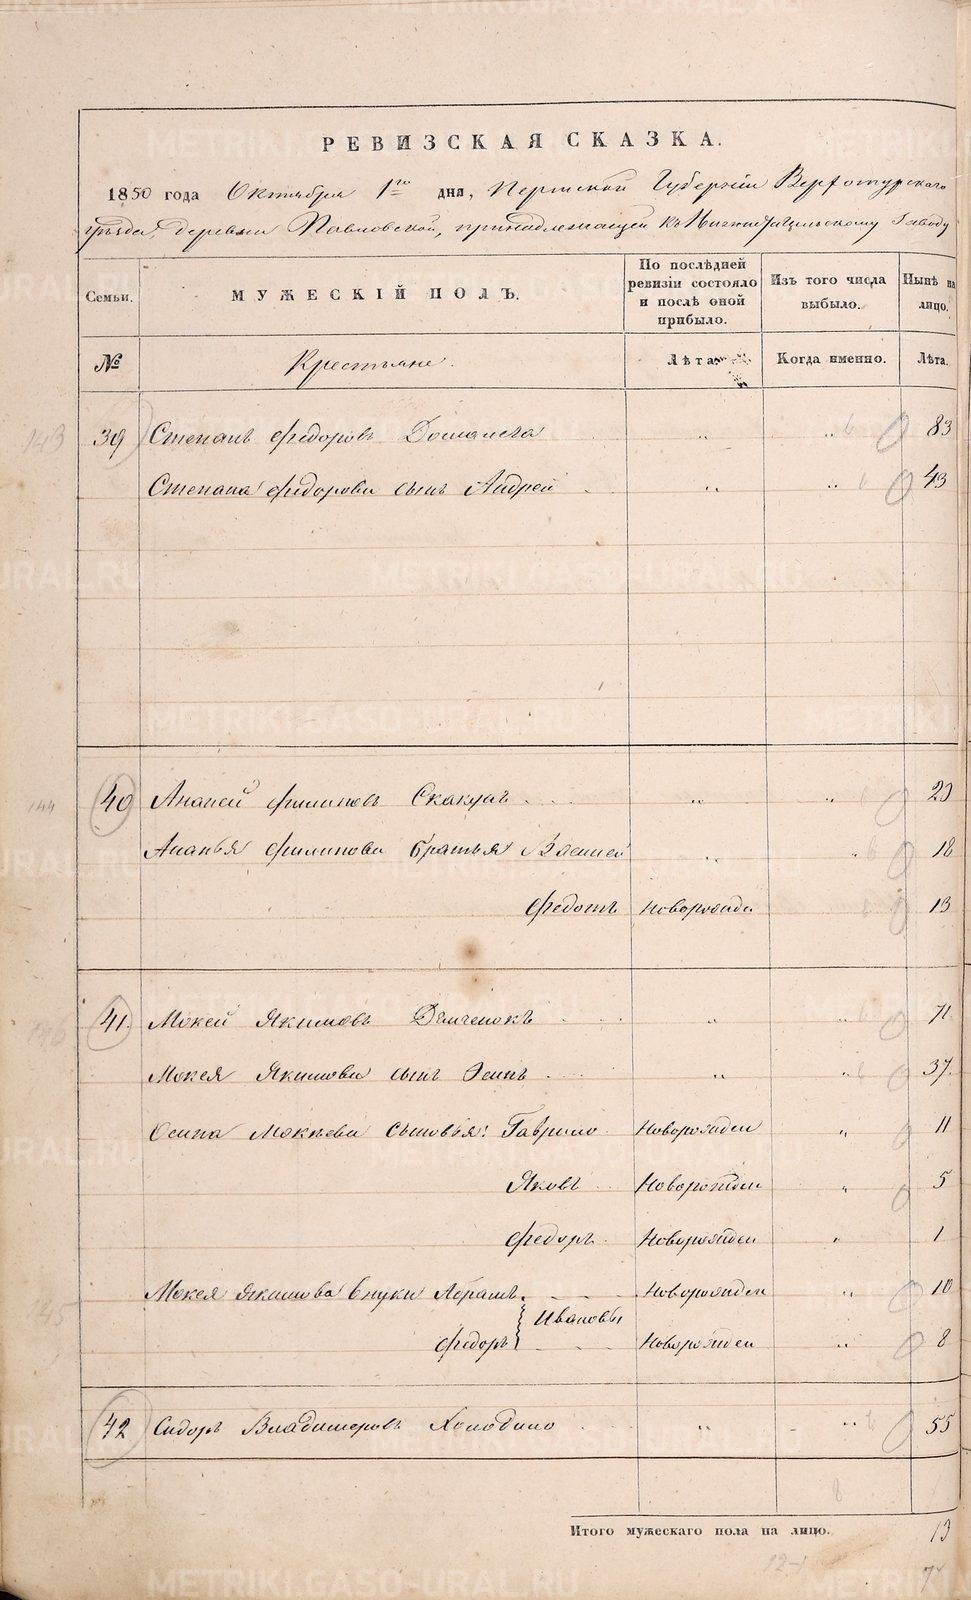 РЕВИЗСКАЯ СКАЗКА.
1850 года Октября 1го дня, Пермской Губерніи Верхотурскаго
уѣзда, деревни Павловской, принадлежащей къ Нижнетагильскому Заводу
Семьи. МУЖЕСКІЙ ПОЛЪ. По послѣдней ревизіи состояло и послѣ оной прибыло. Изъ того числа выбыло. Нынѣ на лицо.
№ Крестьяне. Лѣта. Когда именно. Лѣта.
143 39 Степанъ Федоровъ „ „ 83
Степана Федорова сынъ Андрей „ „ 43
144 40 Ананей Филиповъ Скакунъ „ „ 20
Ананья Филипова братья Василей „ „ 18
Федотъ Новорожден 13
146 41. Мокей Якимовъ Демченокъ „ „ 71
Мокея Якимова сынъ Осипъ „ „ 37.
Осипа Мокеева сыновья: Гаврило Новорожден „ 11
Яковъ Новорожден „ 5
Федоръ Новорожден „ 1
145 Мокея Якимова внуки Абрамъ Новорожден „ 10
Ивановы
Федоръ Новорожден „ 8
42 Сидоръ Владимеровъ Холодило „ „ 55
Итого мужескаго пола на лицо. 13
12-1
7
METRIKI.GASO-URAL.RU